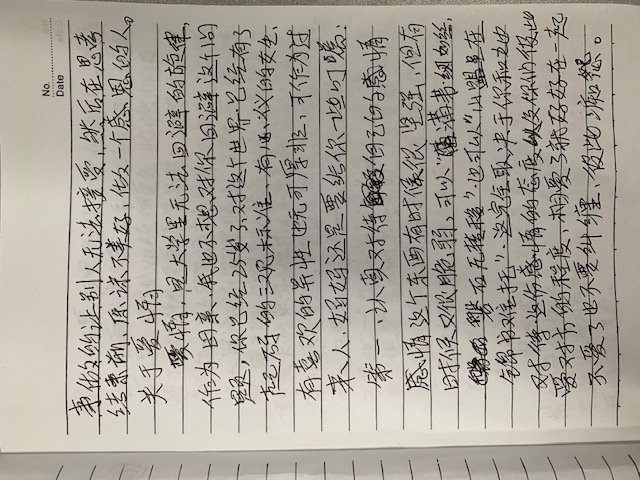 No.
Date
事做的让别人无法接受,然后在思考
结束前,原谅不美好,做一个感恩的人。
关于爱情
爱情,是大学里无法回避的旋律,
作为母亲,我也不想对你回避这个问
题,你已经25岁了,对这个世界已经有了
起码的三观标准,有心仪的女生,
有喜欢的异性也无可厚非,可作为过
来人,妈妈还是要给你一些叮嘱,
第一、认真对待自己的感情
感情这个东西有时候很坚强,但有
时候又很脆弱,可以“蒲苇纫如丝,
磐石无转移”,也可以“山盟虽在
锦书难托”,这完全取决于你和她
对待这份感情的态度以及你们彼此
爱对方的程度,相爱了就好好在一起
不爱了也不要纠缠、彼此痴怨。